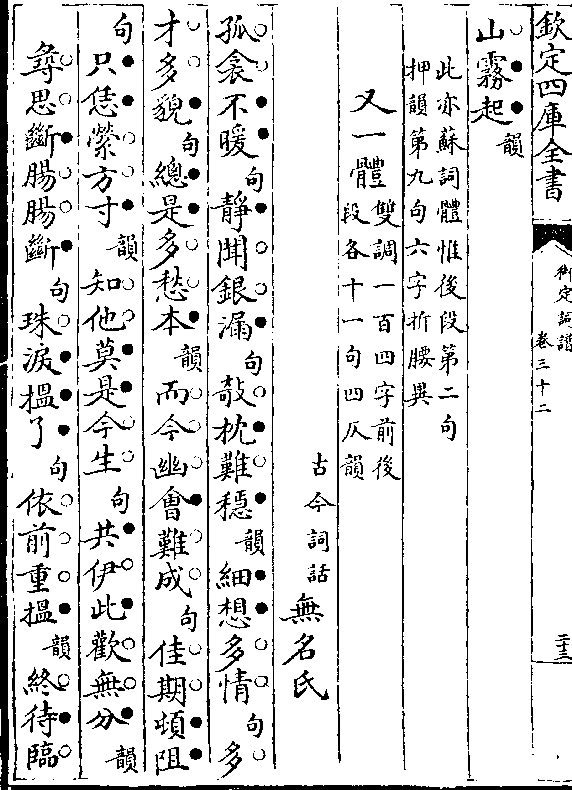 欽定四庫全書
御定詞譜
卷三十二
二十三
山霧起韻
此亦蘇詞體惟後段第二句
押韻第九句六字折腰異
又一體雙調一百四字前後
段各十一句四仄韻
古今詞話無名氏
孤衾不暖句靜聞銀漏句敧枕難穩韻細想多情句多
才多貌句總是多愁本韻而今幽會難成句佳期頓阻
句只恁縈方寸韻知他莫是今生句共伊此歡無分韻
尋思斷腸腸斷句珠淚搵了句依前重搵韻終待臨